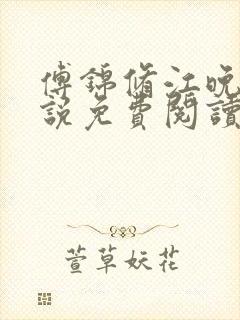 傅锦脩江晚
說免費閱讀
萱草妖花